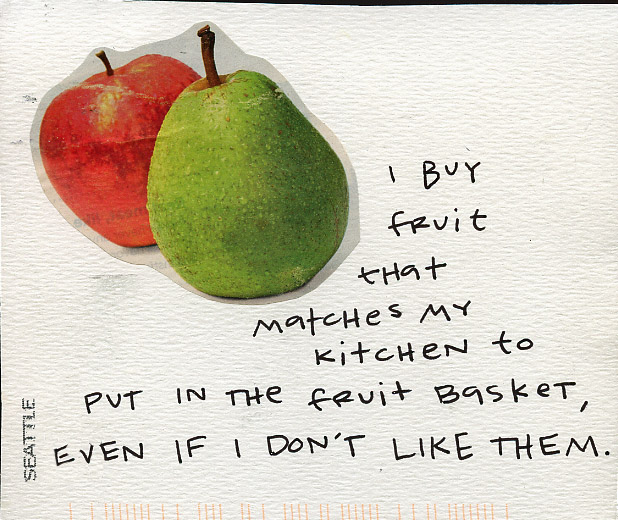 I BUY
fRuit
tHat
MatCHes MY
KitCHEN to
PUT IN THe fRuit BasKET,
EVEN IF I DON'T LIKE THEM.
SEATTLE